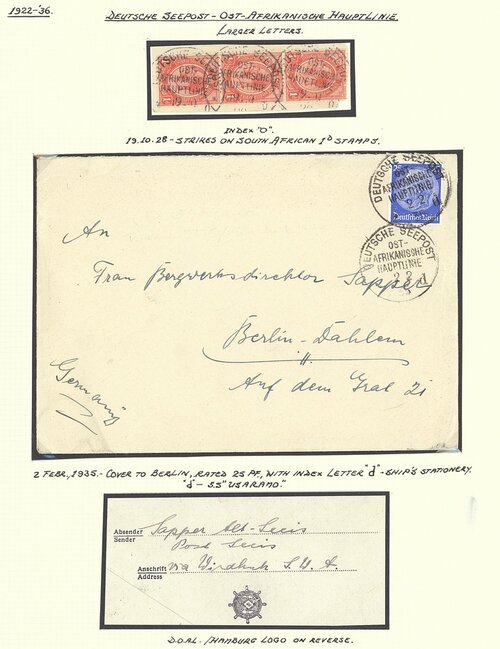 1922-'36.
DEUTSCHE SEEPOST - OST-AFRIKANISCHE HAUPTLINIE.
LARGER LETTERS.
DEUTSCHE SEEPOST
OST-
AFRIKANISCHE
HAUPTLINIE
INDEX "O".
19.10.28 - STRIKES ON SOUTH AFRICAN 1D STAMPS.
DEUTSCHE SEEPOST
OST-
AFRIKANISCHE
HAUPTLINIE
2 2
Deutsches Reich
DEUTSCHE SEEPOST
OST-
AFRIKANISCHE
HAUPTLINIE
2 2
An
Frau Bergwerksdirektor Sapper
Berlin-Dahlem
Auf dem Grat 21
Germany
2 FEBR., 1935. - COVER TO BERLIN, RATED 25 PF, WITH INDEX LETTER "d" - SHIP'S STATIONERY.
"d" - S.S "USARAMO."
Absender
Sender
Sapper
Post Seeis
Anschrift
Address
via Windhuk S.W.A.
D.O.A.L. - HAMBURG LOGO ON REVERSE.